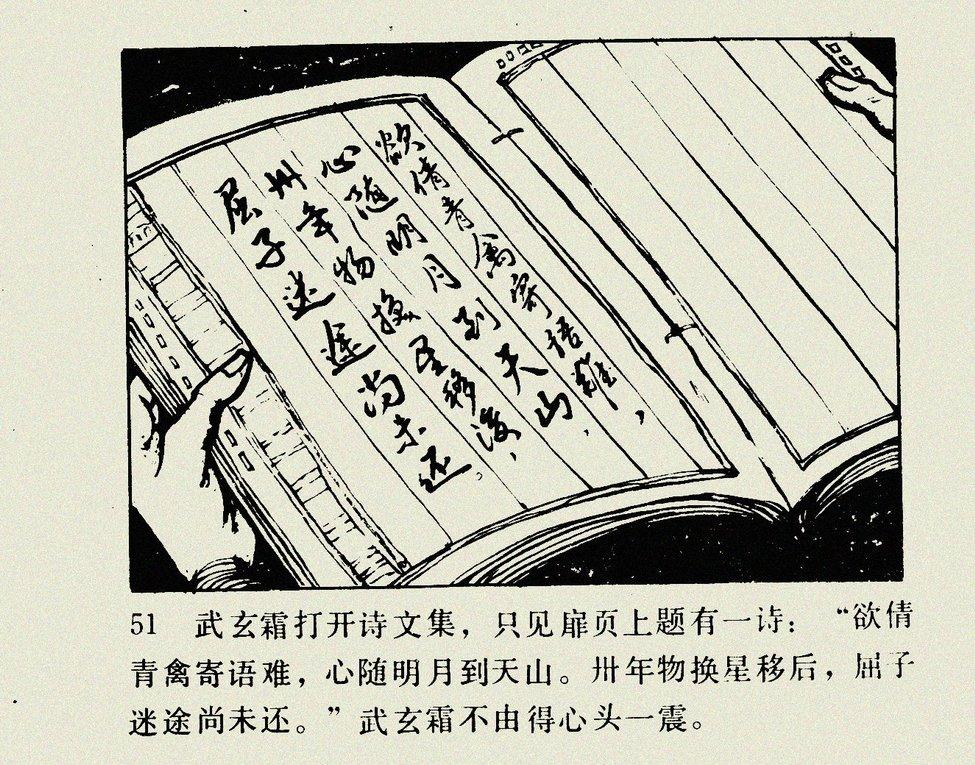 欲倩青禽寄语难，
心随明月到天山。
卅年物换星移后，
屈子迷途尚未还。
51 武玄霜打开诗文集，只见扉页上题有一诗：“欲倩
青禽寄语难，心随明月到天山。卅年物换星移后，屈子
迷途尚未还。”武玄霜不由得心头一震。